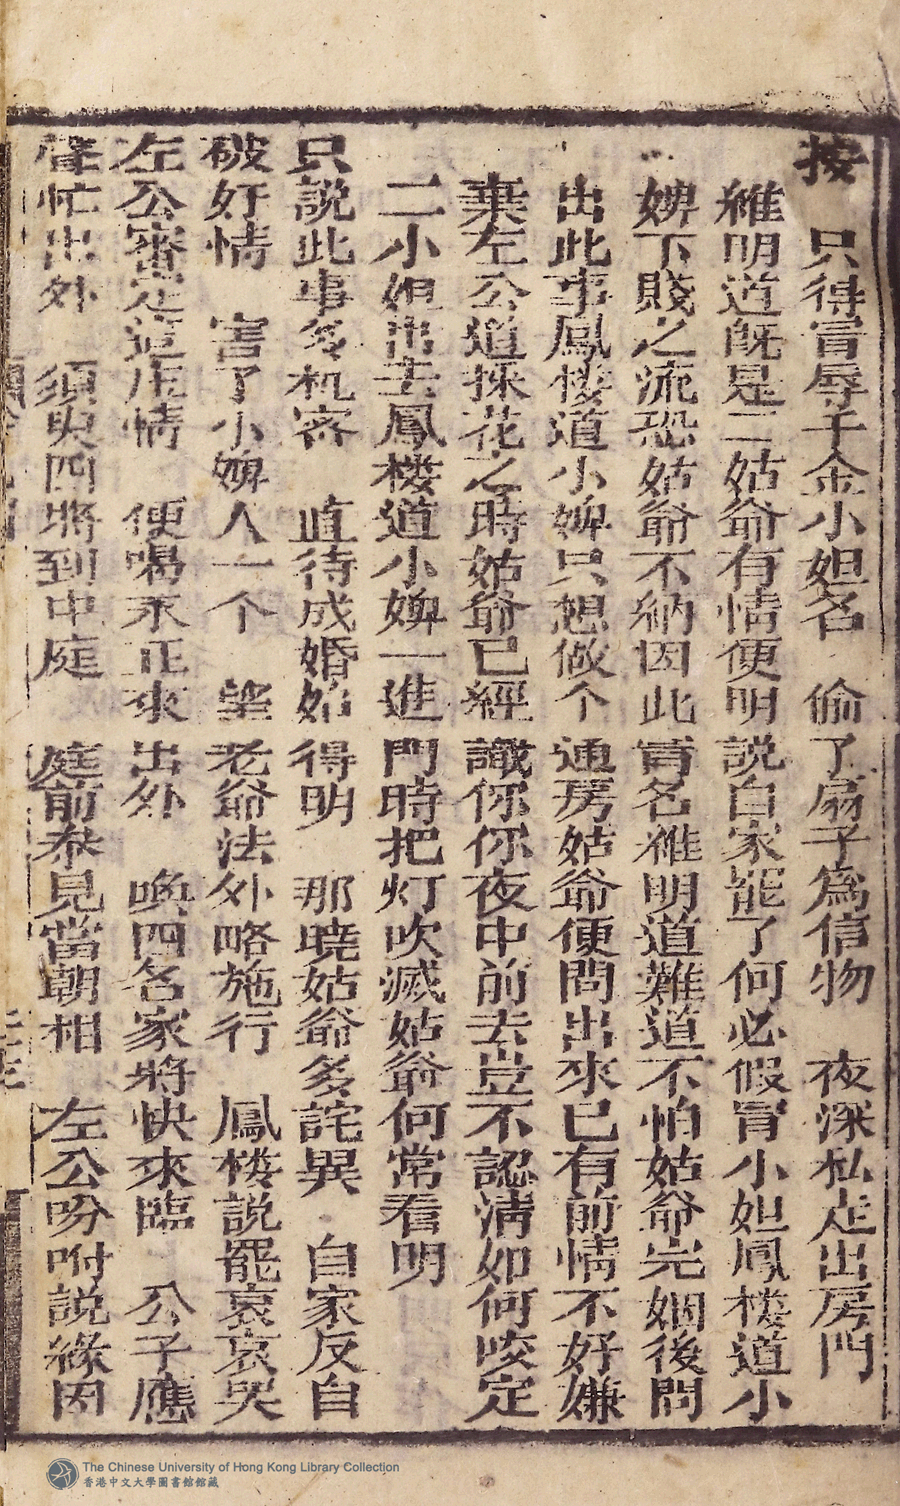 按 只得冒辱千金小姐名 偷了扇子為信物 夜深私走出房門
維明道既是二姑爺有情便明說自家罷了何必假冒小姐鳳楼道小
婢下賤之流恐姑爺不納因此冒名維明道難道不怕姑爺完姻後問
出此事鳳楼道小婢只想做个通房姑爺便問出來已有前情不好嫌
棄左公道採花之時姑爺已經識你你夜中前去豈不認淸如何咬定
二小姐出去鳳楼道小婢一進門時把灯吹滅姑爺何常看明
只說此事多机密 直待成婚始得明 那曉姑爺多詫異 自家反自
破奸情 害了小婢人一个 望老爺法外略施行 鳳楼說罷哀哀哭
左公審定這庄情 便喝永正來出外 喚四名家將快來臨 公子應
聲忙出外 須臾四將到中庭 庭前叅見當朝相 左公吩咐說緣因
The Chinese University of Hong Kong Library Collection
香港中文大學圖書館館藏